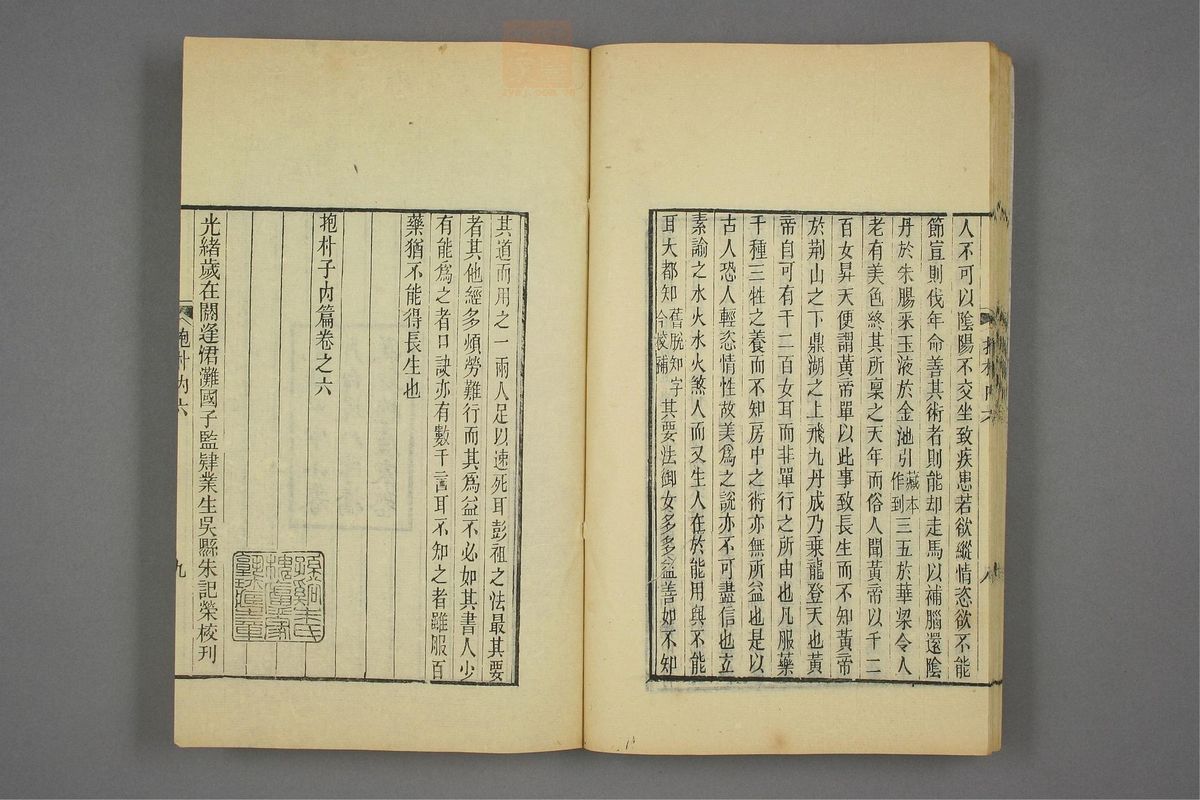 人不可以陰陽不交坐致疾患若欲縱情恣欲不能
節宣則伐年命善其術者則能却走馬以補腦還陰
丹於朱腸采玉液於金池引藏本作到三五於華梁令人
老有美色終其所稟之天年而俗人聞黃帝以千二
百女昇天便謂黃帝單以此事致長生而不知黃帝
於荆山之下鼎湖之上飛九丹成乃乘龍登天也黃
帝自可有千二百女耳而非單行之所由也凡服藥
千種三牲之養而不知房中之術亦無所益也是以
古人恐人輕恣情性故美爲之說亦不可盡信也立
素諭之水火水火煞人而又生人在於能用與不能
耳大都知舊脫知字今校補其要法御女多多益善如不知
八
其道而用之一兩人足以速死耳彭祖之法最其要
者其他經多煩勞難行而其爲益不必如其書人少
有能爲之者口訣亦有數千言耳不知之者雖服百
藥猶不能得長生也
抱朴子內篇卷之六
光緒歲在閼逢涒灘國子監肄業生吳縣朱記榮校刊
抱朴內六
九